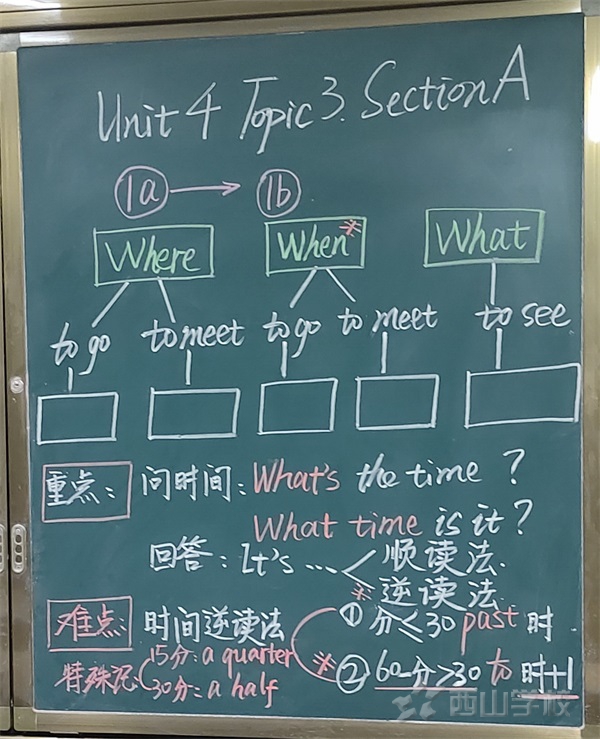 Unit 4 Topic 3. Section A
1a → 1b
Where When※ What
to go to meet to go to meet to see
重点: 问时间: What's the time?
What time is it?
回答: It's … 顺读法.
※逆读法.
难点: 时间逆读法 ①分≤30 past 时.
特殊记 15分: a quarter
30分: a half
※②60-分>30 to 时+1
西山学校